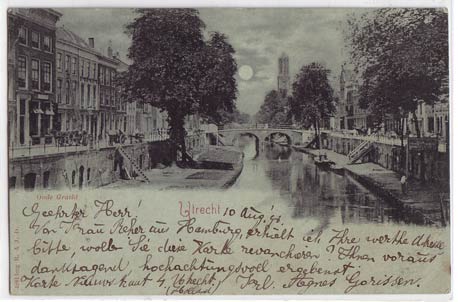 Oude Gracht
Utrecht 10 Aug. 98.
Geehrter Herr!
Von Frau Reher aus Hamburg, erhielt ich Ihre werthe Adresse
bitte, wollen Sie diese Karte revanchiren? Ihnen voraus
danksagend, hochachtungsvoll ergebenst
Karte Nieuwe kaut 4, Utrecht Frl. Agnes Gorissen.
(Holland)